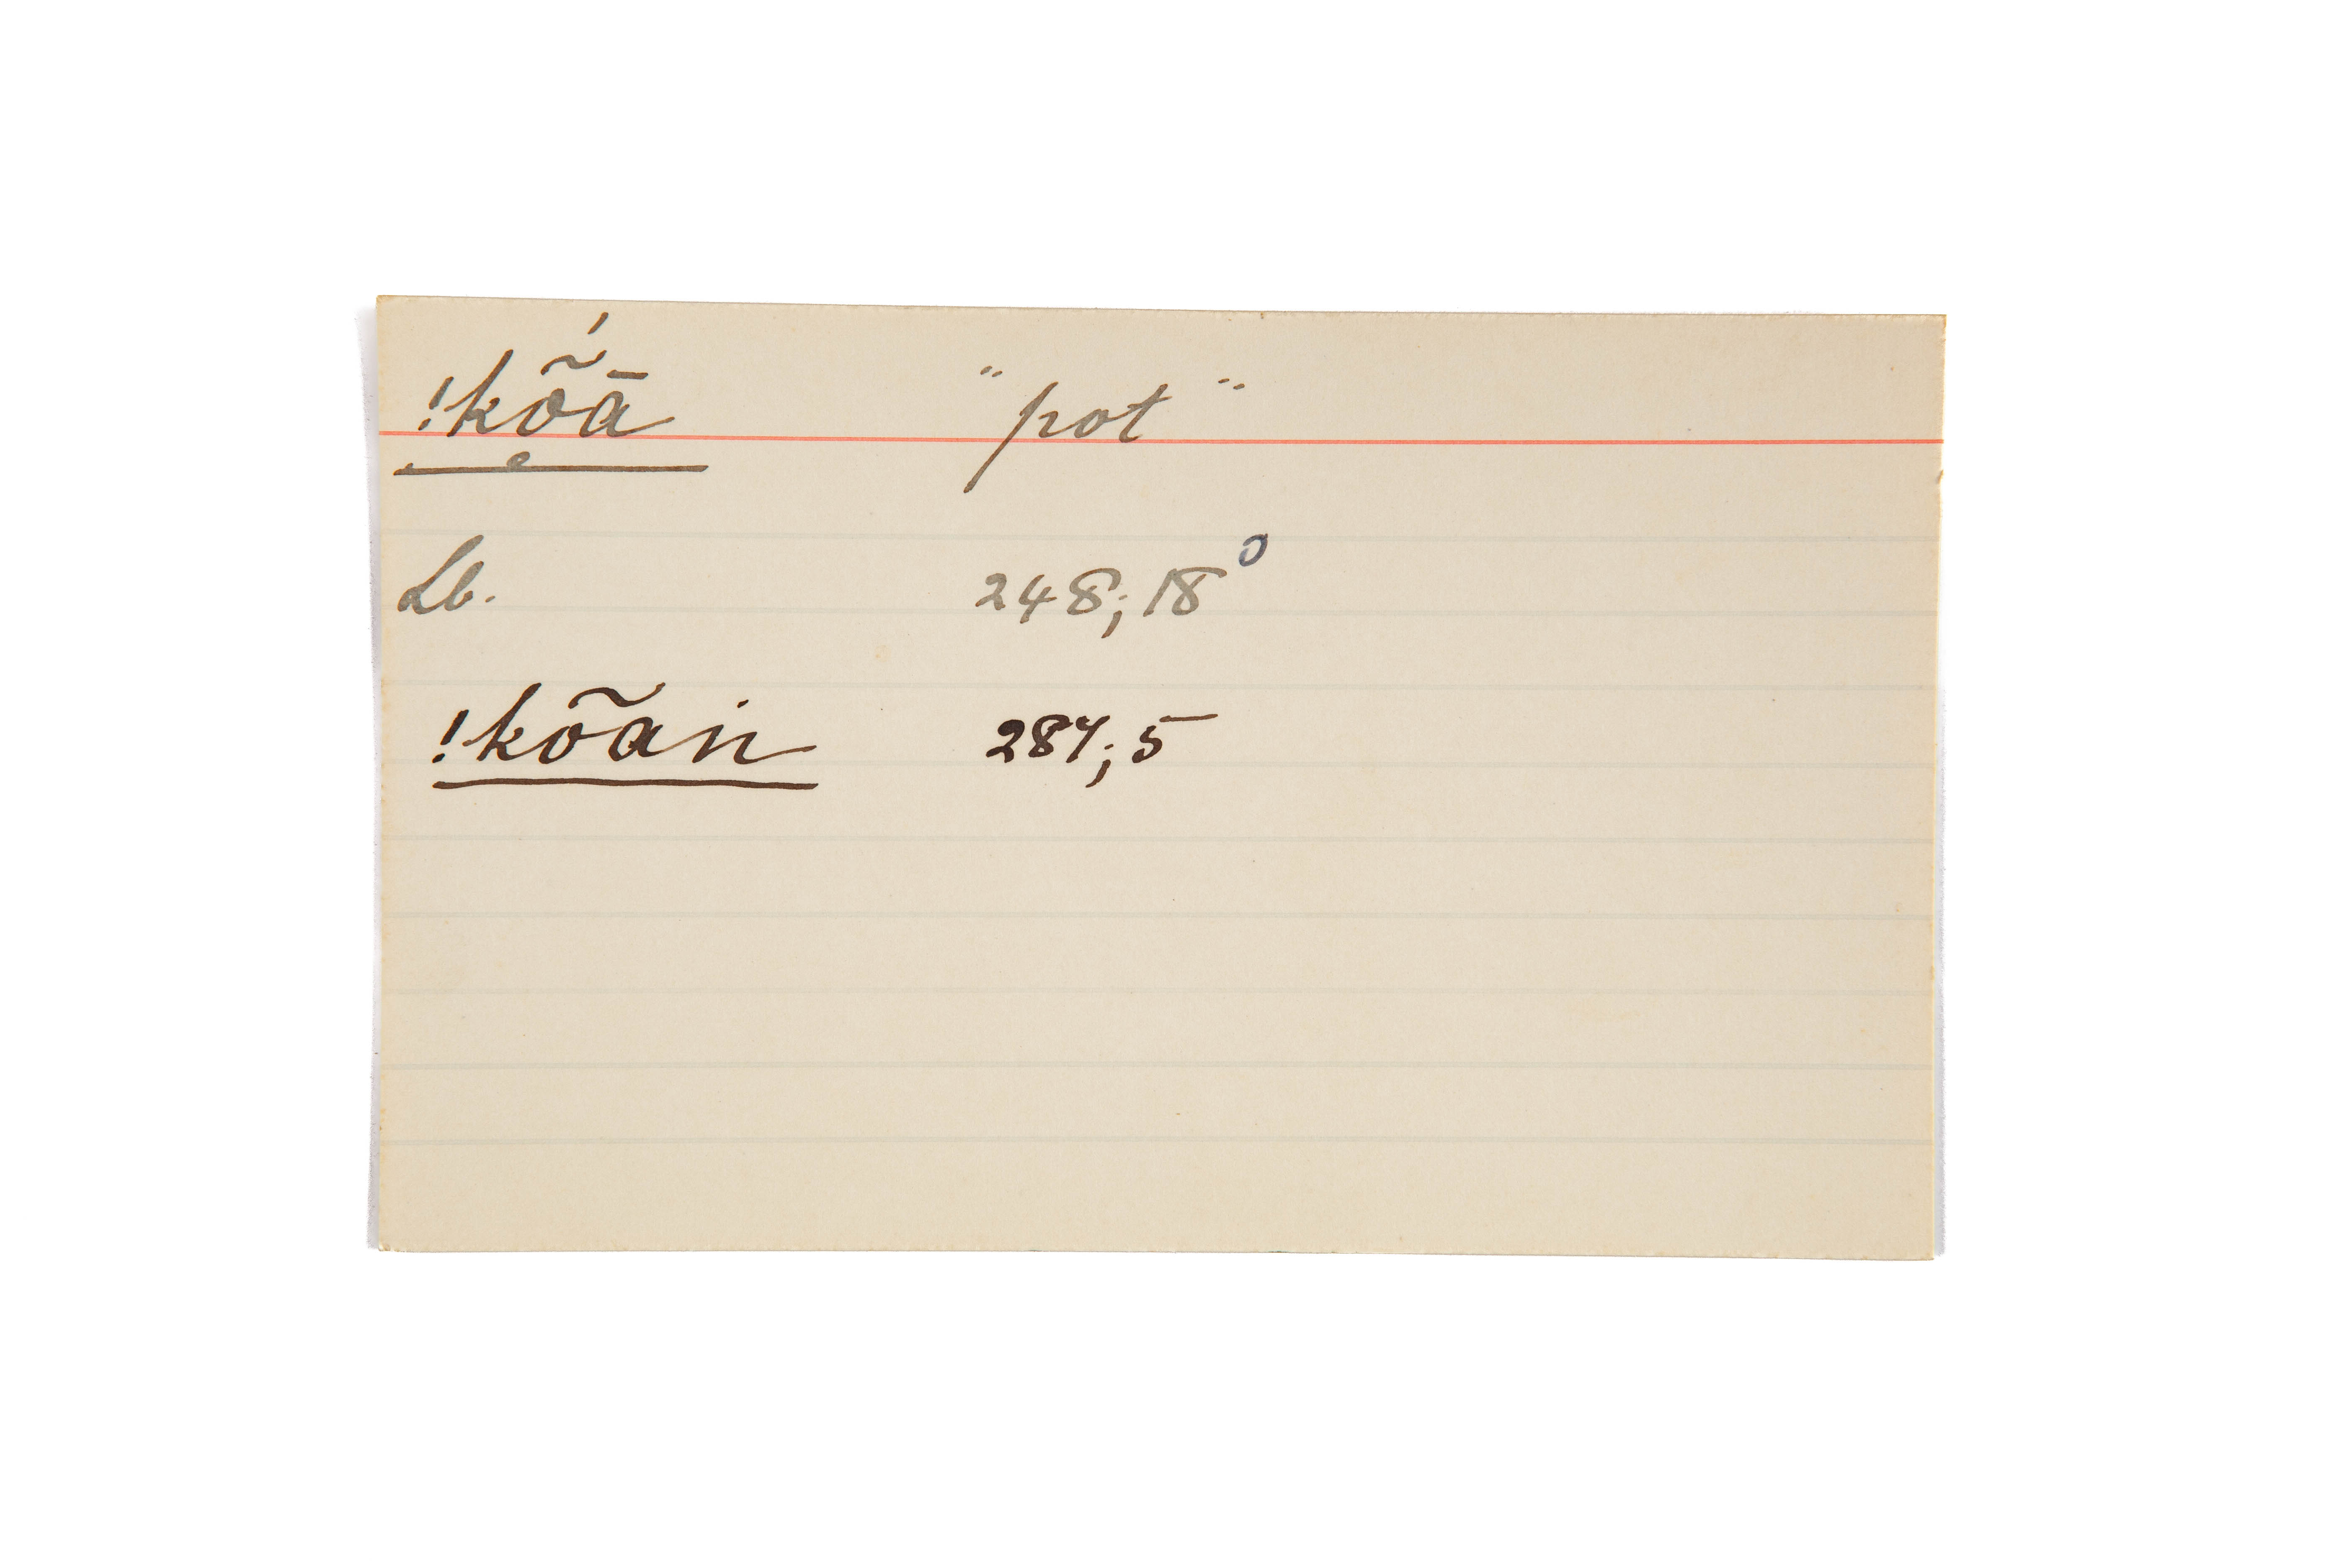 !kṍ̬ā "pot"
Lb. 248; 18⁰
!kõaṅ 287; 5